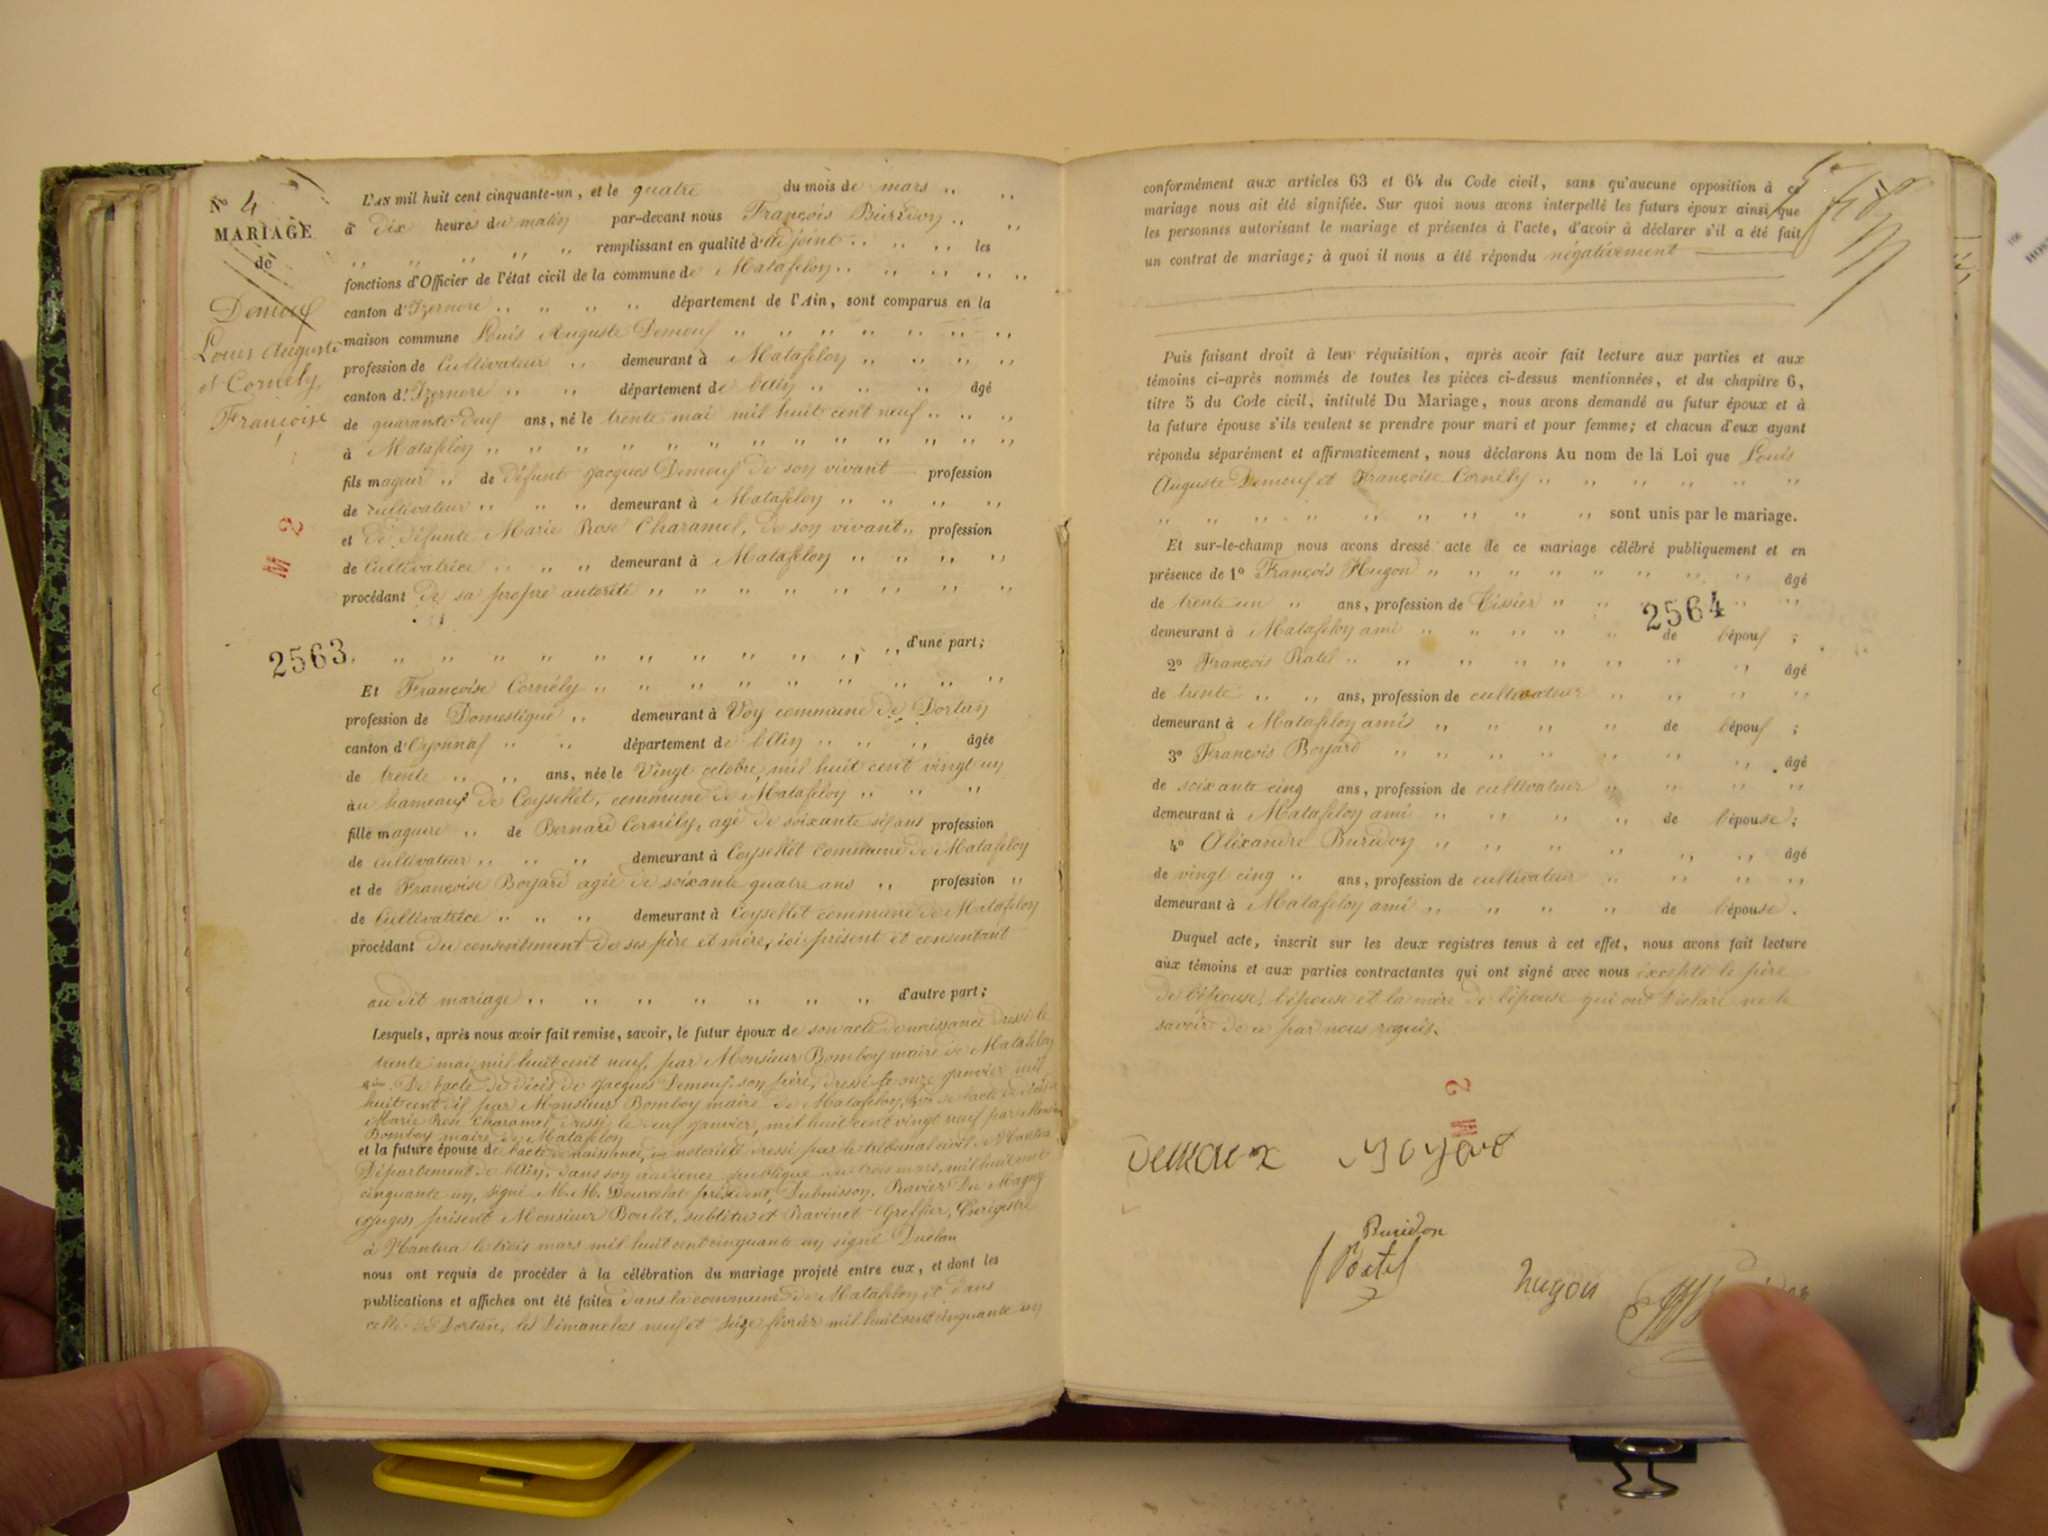 N° 4
MARIAGE
de
Demouf
Louis Auguste
et Cornély
Françoise
M 2
2563
L'AN mil huit cent cinquante-un, et le quatre du mois de mars
à dix heures du matin par-devant nous François Buridon
remplissant en qualité d'adjoint les
fonctions d'Officier de l'état civil de la commune de Matafelon
canton d'Izernore département de l'Ain, sont comparus en la
maison commune Louis Auguste Demouf
profession de Cultivateur demeurant à Matafelon
canton d'Izernore département de l'ain âgé
de quarante deux ans, né le trente mai mil huit cent neuf
à Matafelon
fils mageur de défunt Jacques Demouf de son vivant profession
de cultivateur demeurant à Matafelon
et de défunte Marie Rose Charamel, de son vivant profession
de Cultivatrice demeurant à Matafelon
procédant de sa propre autorité
d'une part;
Et Françoise Cornély
profession de Domestique demeurant à Uoy commune de Dortan
canton d'Oyonnax département de l'Ain âgée
de trente ans, née le Vingt octobre mil huit cent vingt un
au hameaux de Coysellet, commune de Matafelon
fille mageure de Bernard Cornély, agé de soixante six ans profession
de cultivateur demeurant à Coysellet commune de Matafelon
et de Françoise Boyard agée de soixante quatre ans profession
de Cultivatrice demeurant à Coysellet commune de Matafelon
procédant du consentement de ses père et mère, ici présent et consentant
au dit mariage d'autre part;
Lesquels, après nous avoir fait remise, savoir, le futur époux de son acte de naissance dressé le
trente mai mil huit cent neuf, par Monsieur Bomboy maire de Matafelon
De l'acte de décès de Jacques Demouf, son père, dressé le onze janvier mil
huit cent dix par Monsieur Bomboy maire de Matafelon, de l'acte de décès
Marie Rose Charamel dressé le neuf janvier, mil huit cent vingt neuf par
Bomboy maire de Matafelon
et la future épouse de l'acte de naissance, en notoriété dressé par le tribunal civil de Nantua
Département de l'Ain, dans son audience publique du trois mars, mil huit cent
cinquante un, signé M.M. président, Dubuisson, Ravier Du Magny
juges présent Monsieur Boulet, substitut et Ravinet Greffier, Enregistré
à Nantua le trois mars mil huit cent cinquante un signé
nous ont requis de procéder à la célébration du mariage projeté entre eux, et dont les
publications et affiches ont été faites dans la commune de Matafelon et dans
celle de Dortan, les Dimanches neuf et seize février mil huit cent cinquante un
conformément aux articles 63 et 64 du Code civil, sans qu'aucune opposition à ce
mariage nous ait été signifiée. Sur quoi nous avons interpellé les futurs époux ainsi que
les personnes autorisant le mariage et présentes à l'acte, d'avoir à déclarer s'il a été fait
un contrat de mariage; à quoi il nous a été répondu négativement
Puis faisant droit à leur réquisition, après avoir fait lecture aux parties et aux
témoins ci-après nommés de toutes les pièces ci-dessus mentionnées, et du chapitre 6,
titre 5 du Code civil, intitulé Du Mariage, nous avons demandé au futur époux et à
la future épouse s'ils veulent se prendre pour mari et pour femme; et chacun d'eux ayant
répondu séparément et affirmativement, nous déclarons Au nom de la Loi que Louis
Auguste Demouf et Françoise Cornély
sont unis par le mariage.
Et sur-le-champ nous avons dressé acte de ce mariage célébré publiquement et en
présence de 1° François Hugon âgé
de trente un ans, profession de Tissier
2564
demeurant à Matafelon ami de l'époux ;
2° François Ratel âgé
de trente ans, profession de cultivateur
demeurant à Matafelon ami de l'époux ;
3° François Boyard âgé
de soixante cinq ans, profession de cultivateur
demeurant à Matafelon ami de l'épouse;
4° Aléxandre Buridon âgé
de vingt cinq ans, profession de cultivateur
demeurant à Matafelon ami de l'épouse.
Duquel acte, inscrit sur les deux registres tenus à cet effet, nous avons fait lecture
aux témoins et aux parties contractantes qui ont signé avec nous excepté le père
de l'épouse, l'épouse et la mère de l'épouse qui ont déclaré ne le
savoir de ce par nous requis.
M 2
Demoux Boyard
Buridon
Ratel
hugon